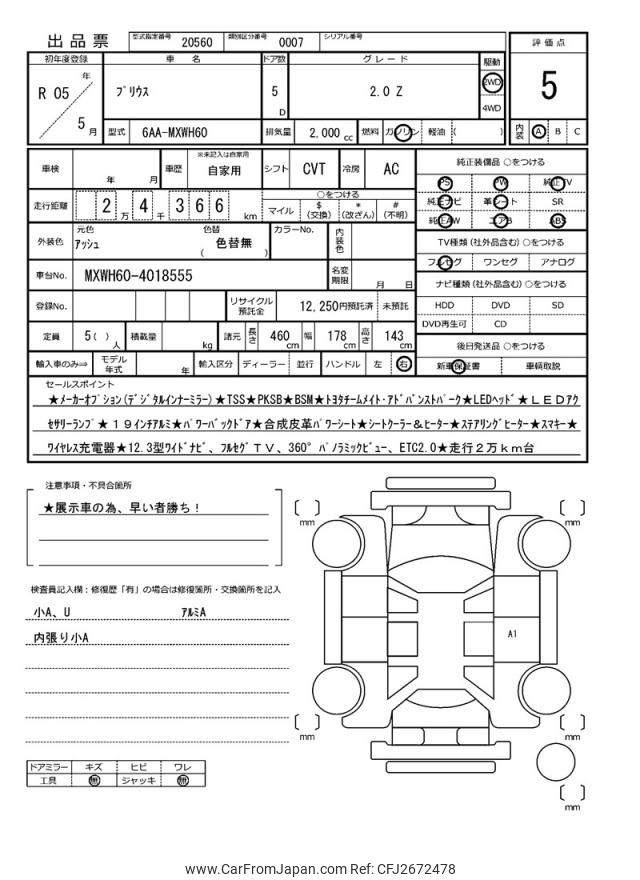 出品票 型式指定番号 20560 類別区分番号 0007 シリアル番号
初年度登録 車名 ドア数 グレード 駆動 評価点
R 05 年 5 月 プリウス 5 D 2.0 Z 2WD 4WD 5
型式 6AA-MXWH60 排気量 2,000 cc 燃料 ガソリン 軽油 ( ) 内装 A B C
車検 年 月 車歴 ※未記入は自家用 自家用 シフト CVT 冷房 AC
走行距離 2 万 4 千 3 6 6 km ○をつける マイル $ (交換) * (改ざん) # (不明)
外装色 元色 アッシュ 色替 色替無 ( ) カラーNo. 内装色
車台No. MXWH60-4018555 名変期限 月 日
登録No. リサイクル預託金 12,250円預託済 未預託
定員 5( ) 人 積載量 kg 諸元 長さ 460 cm 幅 178 cm 高さ 143 cm
輸入車のみ⇒ モデル年式 年 輸入区分 ディーラー 並行 ハンドル 左 右
純正装備品 ○をつける
PS PW 純正TV
純正ナビ 革シート SR
純正AW エアB ABS
TV種類 (社外品含む) ○をつける
フルセグ ワンセグ アナログ
ナビ種類 (社外品含む) ○をつける
HDD DVD SD
DVD再生可 CD
後日発送品 ○をつける
新車保証書 車輌取説
セールスポイント
★メーカーオプション(デジタルインナーミラー)★TSS★PKSB★BSM★トヨタチームメイト・アドバンストパーク★LEDヘッド★LEDアク
セサリーランプ★19インチアルミ★パワーバックドア★合成皮革パワーシート★シートクーラー&ヒーター★ステアリングヒーター★スマキー★
ワイヤレス充電器★12.3型ワイドナビ、フルセグTV、360°パノラミックビュー、ETC2.0★走行2万km台
注意事項・不具合箇所
★展示車の為、早い者勝ち!
検査員記入欄:修復歴「有」の場合は修復箇所・交換箇所を記入
小A、U アルミA
内張り小A
ドアミラー キズ ヒビ ワレ
工具 無 ジャッキ 無
mm
mm
A1
mm
mm
mm
www.CarFromJapan.com Ref: CFJ2672478